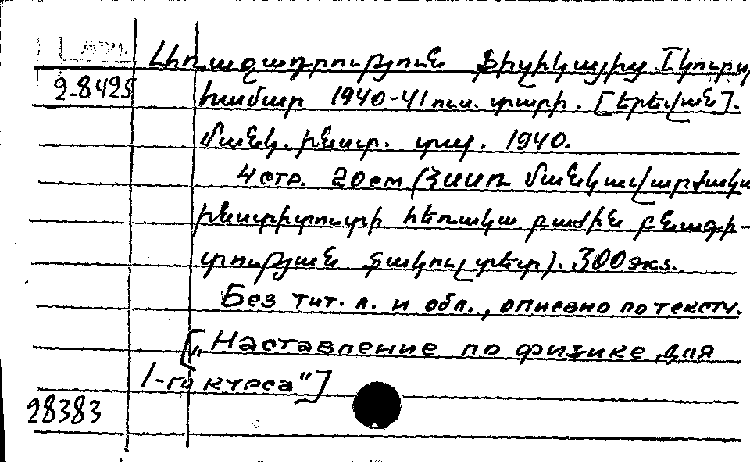 Լիազադրություն Ֆիզիկայից I կուրսի
2-8425 համար 1940-41 ուս. տարի. [Երևան].
մանկ. ինստ. տպ. 1940.
4 стр. 20 см (ՀՍՍՌ մանկավարժական
ինստիտուտի հեռակա բաժին բնագի-
տության ֆակուլտետ). 300 экз.
Без тит. л. и обл., описано по тексту.
[„Наставление по физике для
1-го курса"]
28383